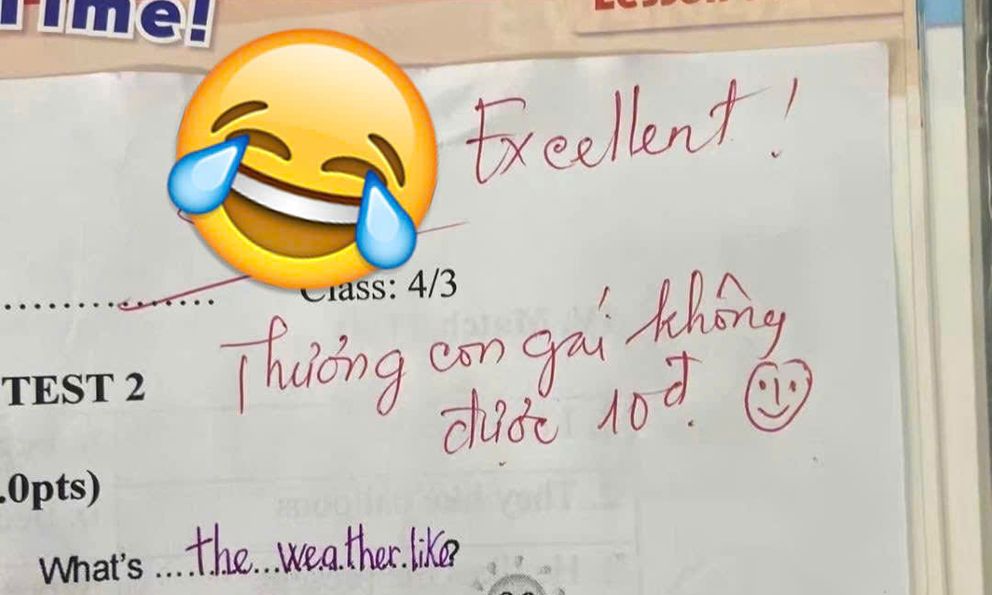 Time!
Lesson
Excellent!
Class: 4/3
Thưởng con gái không
được 10đ.
TEST 2
.0pts)
What's ....the...weather.like?